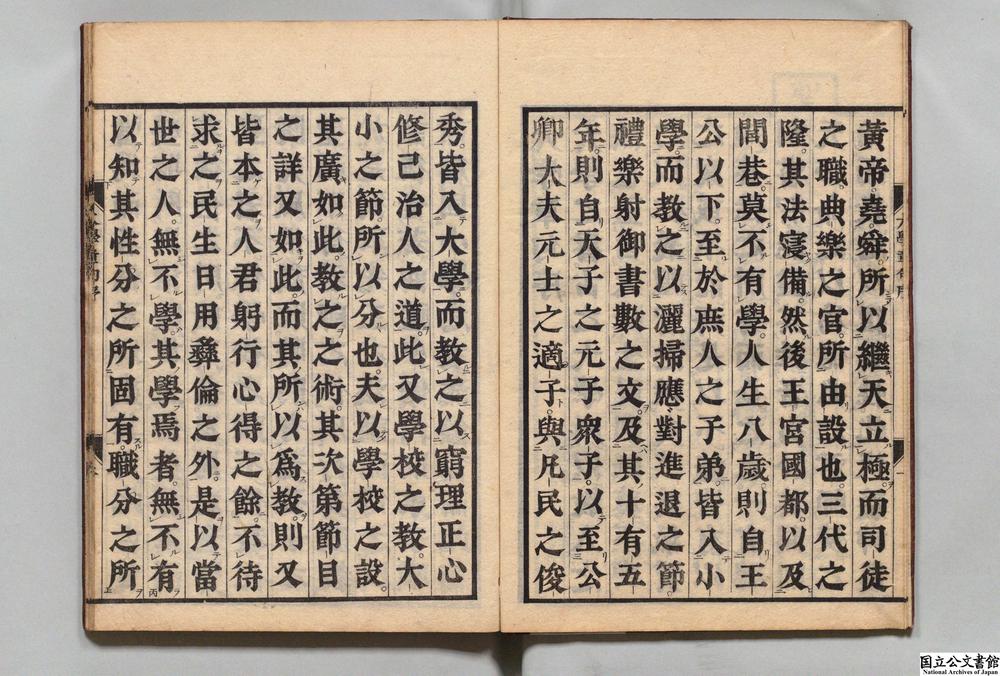 黃帝堯舜所以繼天立極而司徒
之職典樂之官所由設也三代之
隆其法寖備然後王宮國都以及
閭巷莫不有學人生八歲則自王
公以下至於庶人之子弟皆入小
學而教之以灑掃應對進退之節
禮樂射御書數之文及其十有五
年則自天子之元子衆子以至公
卿大夫元士之適子與凡民之俊
秀皆入大學而教之以窮理正心
修己治人之道此又學校之教大
小之節所以分也夫以學校之設
其廣如此教之之術其次第節目
之詳又如此而其所以爲教則又
皆本之人君躬行心得之餘不待
求之民生日用彝倫之外是以當
世之人無不學其學焉者無不有
以知其性分之所固有職分之所
国立公文書館
National Archives of Japan